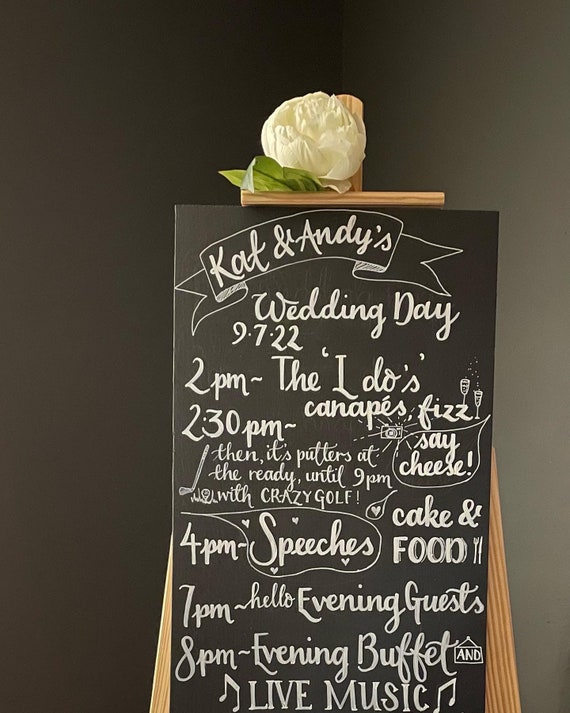 Kat & Andy's
Wedding Day
9.7.22
2pm~ The 'I do's'
230pm~ canapés, fizz
say
cheese!
then, it's putters at
the ready, until 9pm
with CRAZY GOLF!
4pm~ Speeches
cake &
FOOD
7pm~ hello Evening Guests
8pm~ Evening Buffet AND
LIVE MUSIC